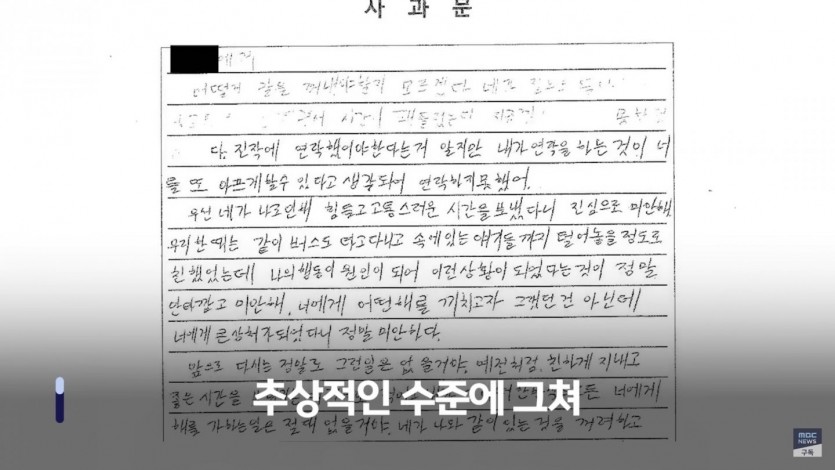 사 과 문
에게
어떻게 말을 꺼내야할지 모르겠다
시간이
담 진작에 연락했어야한다는거 알지만 내가 연락을 하는 것이 너
를 또 아프게 할수 있다고 생각되어 연락하지 못했어.
우선 네가 나로인해 힘들고 고통스러운 시간을 보냈다니 진심으로 미안해
우리 한때는 같이 버스도 타고다니고 속에있는 얘기들 까지 털어놓을 정도로
친했었는데 나의 행동이 원인이 되어 이런상황이 되었다는것이 정말
안타깝고 미안해. 너에게 어떤해를 끼치고자 그랬던건 아닌데
너에게 큰 상처가 되었다니 정말 미안하다.
앞으로 다시는 정말로 그런일은 없을거야. 예전처럼 친하게 지내고
좋은 시간을 너에게
해를 가하는일은 절때 없을거야. 네가 나와 같이 있는 것을 꺼려하고
추상적인 수준에 그쳐
MBC
NEWS
구독